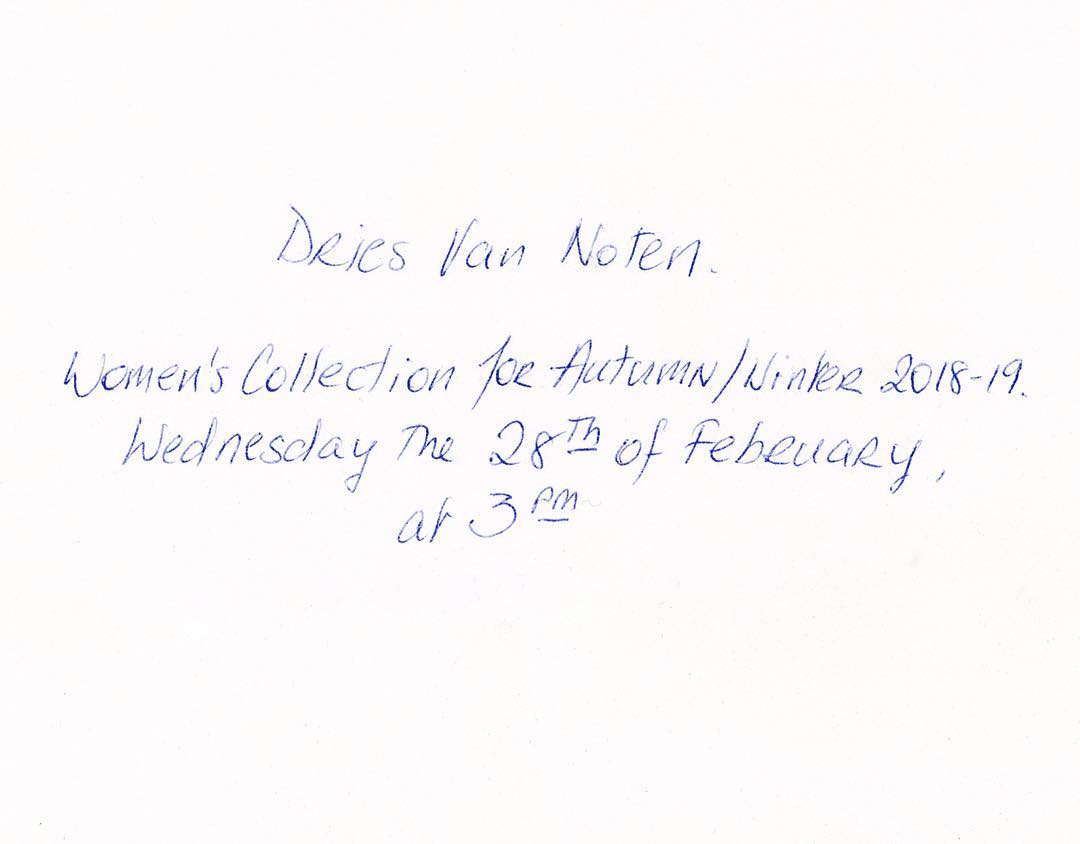 Dries Van Noten.
Women's Collection for Autumn/Winter 2018-19.
Wednesday The 28Th of February,
at 3 pm